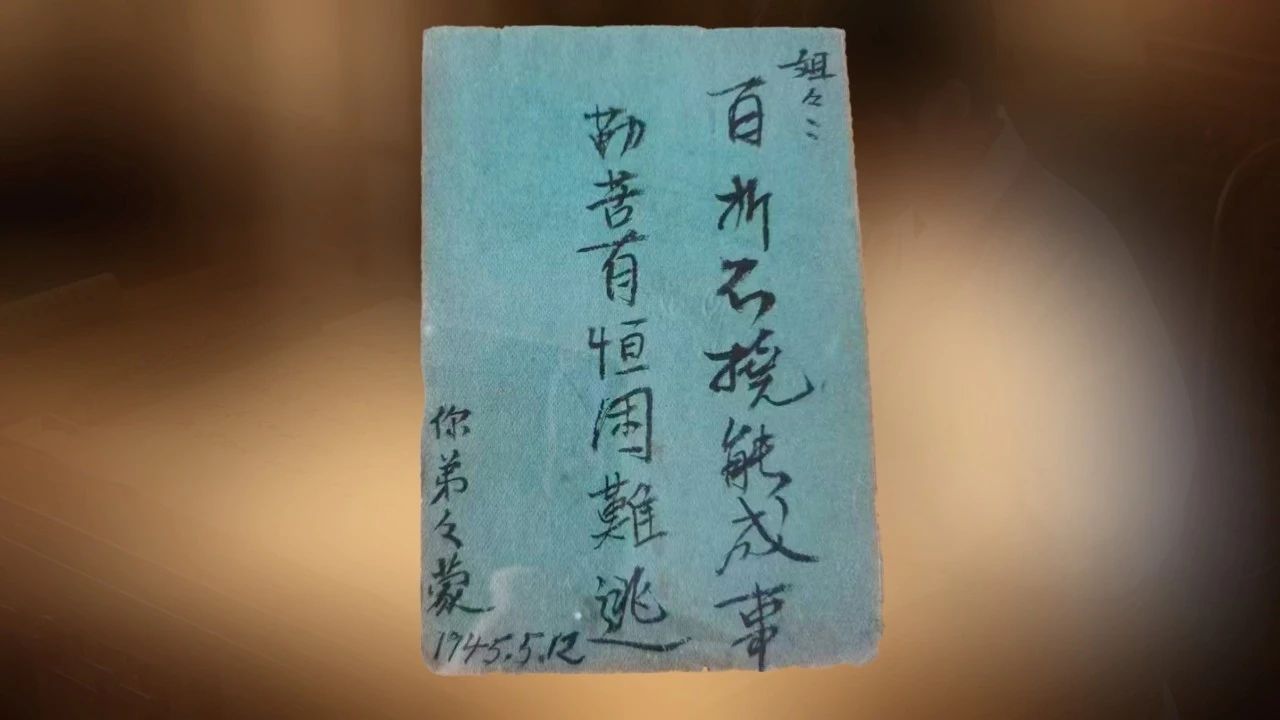 姐々：
百折不撓能成事
勤苦有恒困難逃
你弟々蒙
1945.5.12